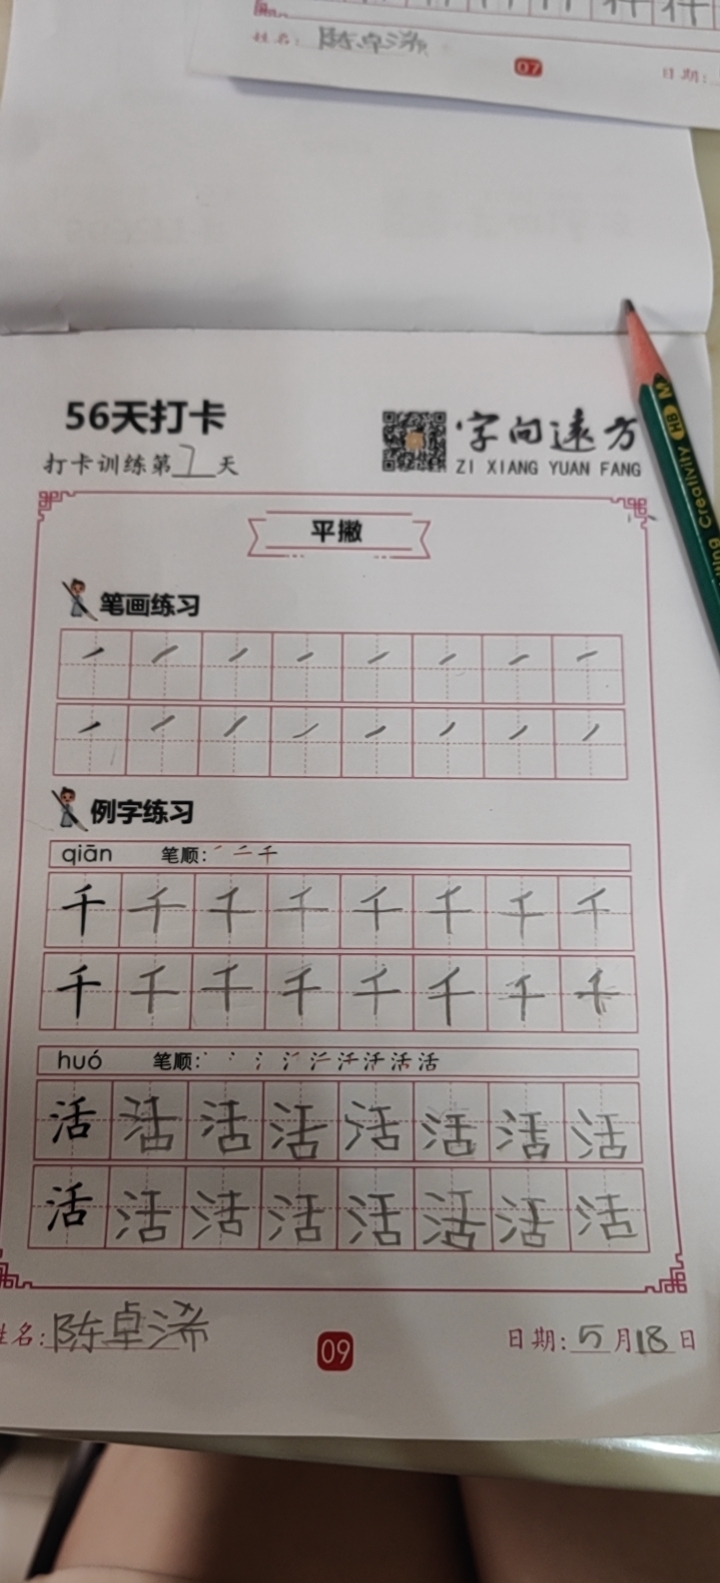 姓名: 陈卓浠
07
日期:
56天打卡
打卡训练第7天
字向远方
ZI XIANG YUAN FANG
HB
M
Creativity
平撇
笔画练习
例字练习
qiān 笔顺:
千 千 千 千 千 千 千 千
千 千 千 千 千 千 千 千
huó 笔顺:
活 活 活 活 活 活 活 活
活 活 活 活 活 活 活 活
姓名: 陈卓浠
09
日期: 5月18日